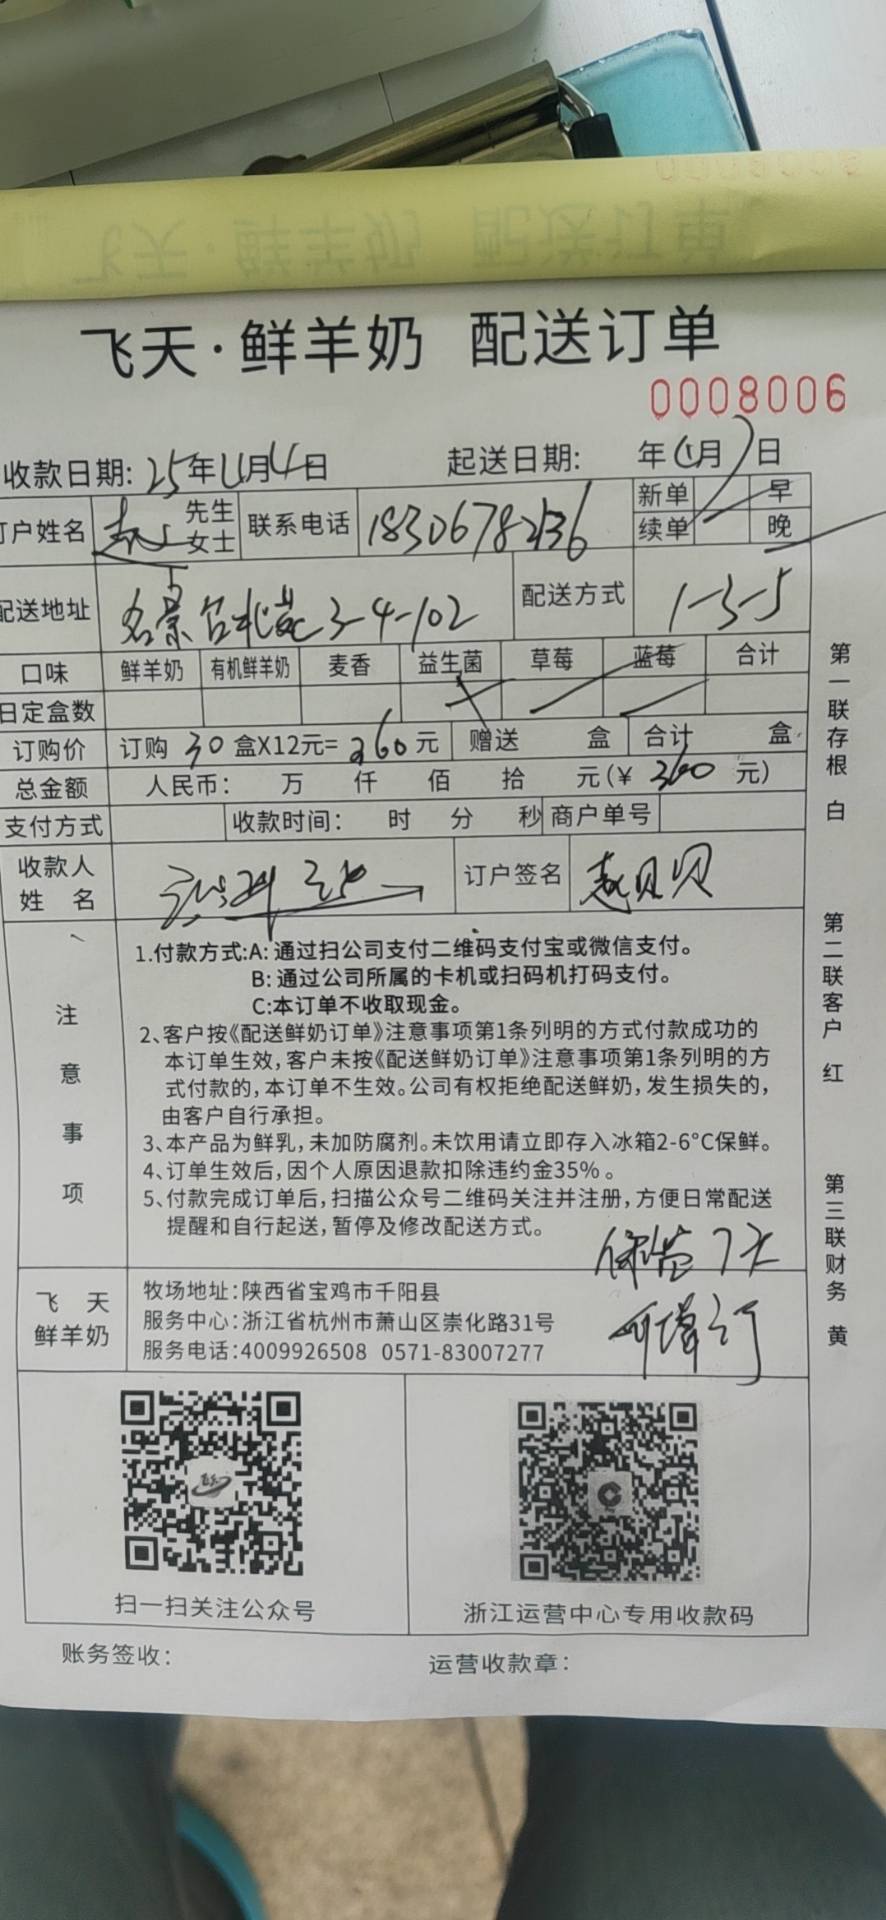 飞天·鲜羊奶 配送订单
0008006
收款日期: 25年4月4日 起送日期: 年 月 日
订户姓名 赵 先生 女士 联系电话 新单 早
续单 晚
配送地址 名景台北苑3-4-102 配送方式 1-3-5
口味 鲜羊奶 有机鲜羊奶 麦香 益生菌 草莓 蓝莓 合计
日定盒数
订购价 订购 30 盒X12元= 360 元 赠送 盒 合计 盒
总金额 人民币: 万 仟 佰 拾 元(¥ 360 元)
支付方式 收款时间: 时 分 秒 商户单号
收款人姓名 订户签名 赵贝贝
注意事项
1.付款方式:A:通过扫公司支付二维码支付宝或微信支付。
B:通过公司所属的卡机或扫码机打码支付。
C:本订单不收取现金。
2、客户按《配送鲜奶订单》注意事项第1条列明的方式付款成功的
本订单生效,客户未按《配送鲜奶订单》注意事项第1条列明的方
式付款的,本订单不生效。公司有权拒绝配送鲜奶,发生损失的,
由客户自行承担。
3、本产品为鲜乳,未加防腐剂。未饮用请立即存入冰箱2-6°C保鲜。
4、订单生效后,因个人原因退款扣除违约金35%。
5、付款完成订单后,扫描公众号二维码关注并注册,方便日常配送
提醒和自行起送,暂停及修改配送方式。
7天
飞天 牧场地址:陕西省宝鸡市千阳县
鲜羊奶 服务中心:浙江省杭州市萧山区崇化路31号
服务电话:4009926508 0571-83007277
扫一扫关注公众号 浙江运营中心专用收款码
账务签收: 运营收款章:
第一联存根 白
第二联客户 红
第三联财务 黄